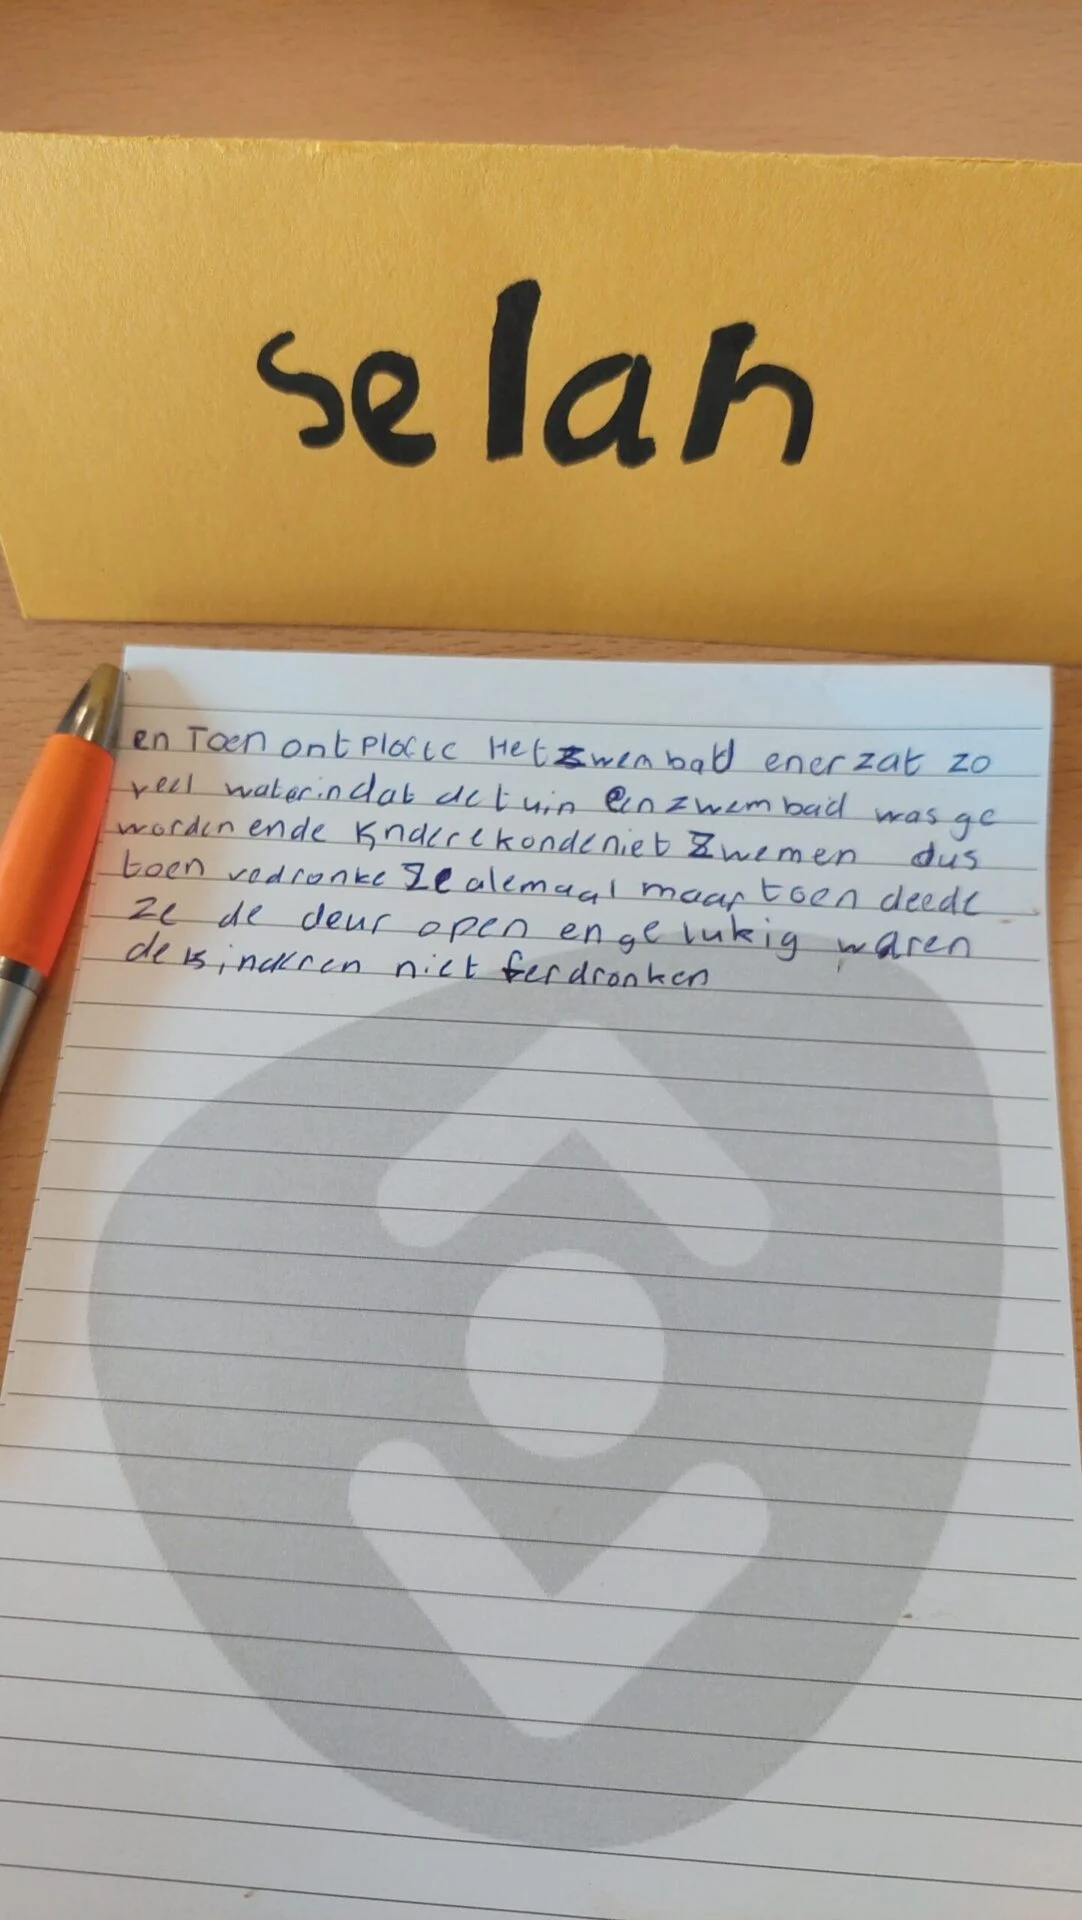 selan
en Toen ontplofte Het zwembad en er zat zo
veel water in dat de tuin een zwembad was ge
worden en de knderekonde niet zwemen dus
toen vedronke ze alemaal maar toen deede
ze de deur open en gelukig waren
de kinderen niet ferdronken